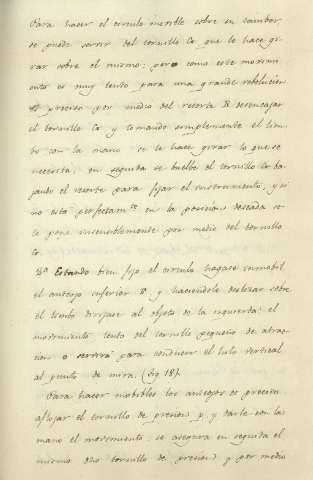 Para hacer el circulo movible sobre su tambor
se puede servir del tornillo Co que le hace gi-
rar sobre el mismo; pero como este movimi-
ento es muy lento para una grande rebolucion
es preciso por medio del resorte R desencajar
el tornillo Co y tomando simplemente el lim-
bo con la mano se le hace girar lo que se
necesita; en seguida se buelbe el tornillo Co ba-
jando el resorte para fijar el instrumento, y si
no está perfectam.te en la posicion deseada se
le pone insensiblemente por medio del tornillo
Co
2.ª Estando bien fijo el circulo hagase inmobil
el anteojo inferior y haciendole deslizar sobre
el limbo dirijase al objeto de la izquierda; el
movimiento lento del tornillo pequeño de atrac-
cion o servirá para conducir el hilo vertical
al punto de mira. (fig 18).
Para hacer mobibles los anteojos es preciso
aflojar el tornillo de presion p, y darle con la
mano el movimiento: se asegura en seguida el
mismo dho tornillo de presion y por medio